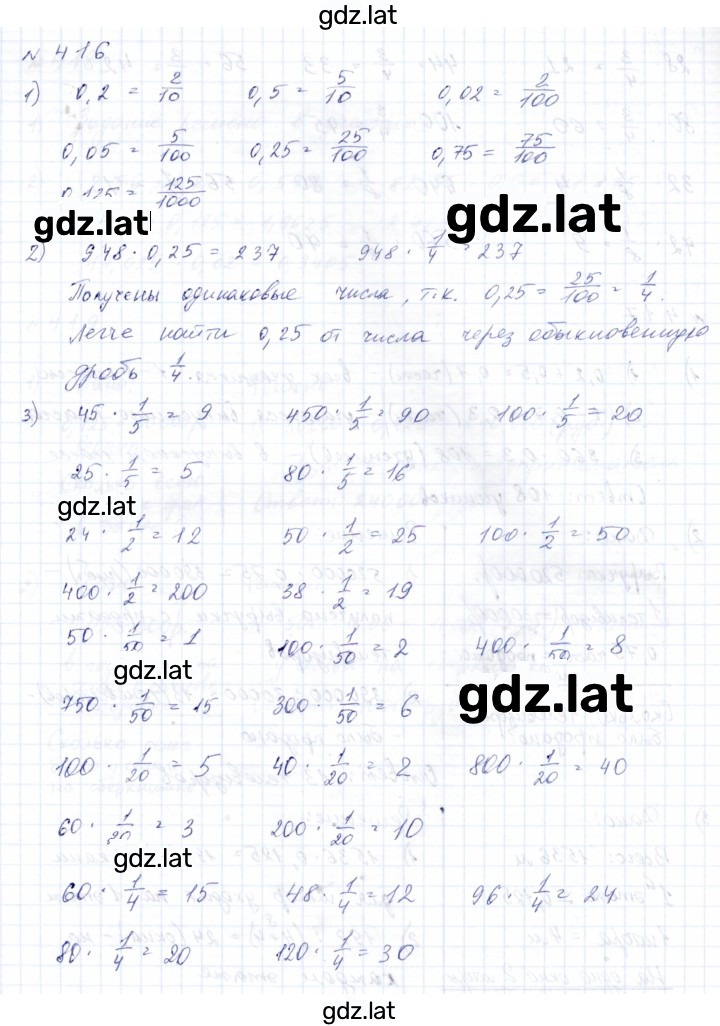 gdz.lat
№ 416
1) 0,2 = 2/10 0,5 = 5/10 0,02 = 2/100
0,05 = 5/100 0,25 = 25/100 0,75 = 75/100
0,125 = 125/1000
gdz.lat gdz.lat
2) 948 · 0,25 = 237 948 · 1/4 = 237
Получены одинаковые числа, т.к. 0,25 = 25/100 = 1/4.
Легче найти 0,25 от числа через обыкновенную
дробь 1/4.
3) 45 · 1/5 = 9 450 · 1/5 = 90 100 · 1/5 = 20
25 · 1/5 = 5 80 · 1/5 = 16
gdz.lat
24 · 1/2 = 12 50 · 1/2 = 25 100 · 1/2 = 50
400 · 1/2 = 200 38 · 1/2 = 19
50 · 1/50 = 1 100 · 1/50 = 2 400 · 1/50 = 8
gdz.lat gdz.lat
750 · 1/50 = 15 300 · 1/50 = 6
100 · 1/20 = 5 40 · 1/20 = 2 800 · 1/20 = 40
60 · 1/20 = 3 200 · 1/20 = 10
gdz.lat
60 · 1/4 = 15 48 · 1/4 = 12 96 · 1/4 = 24
80 · 1/4 = 20 120 · 1/4 = 30
gdz.lat